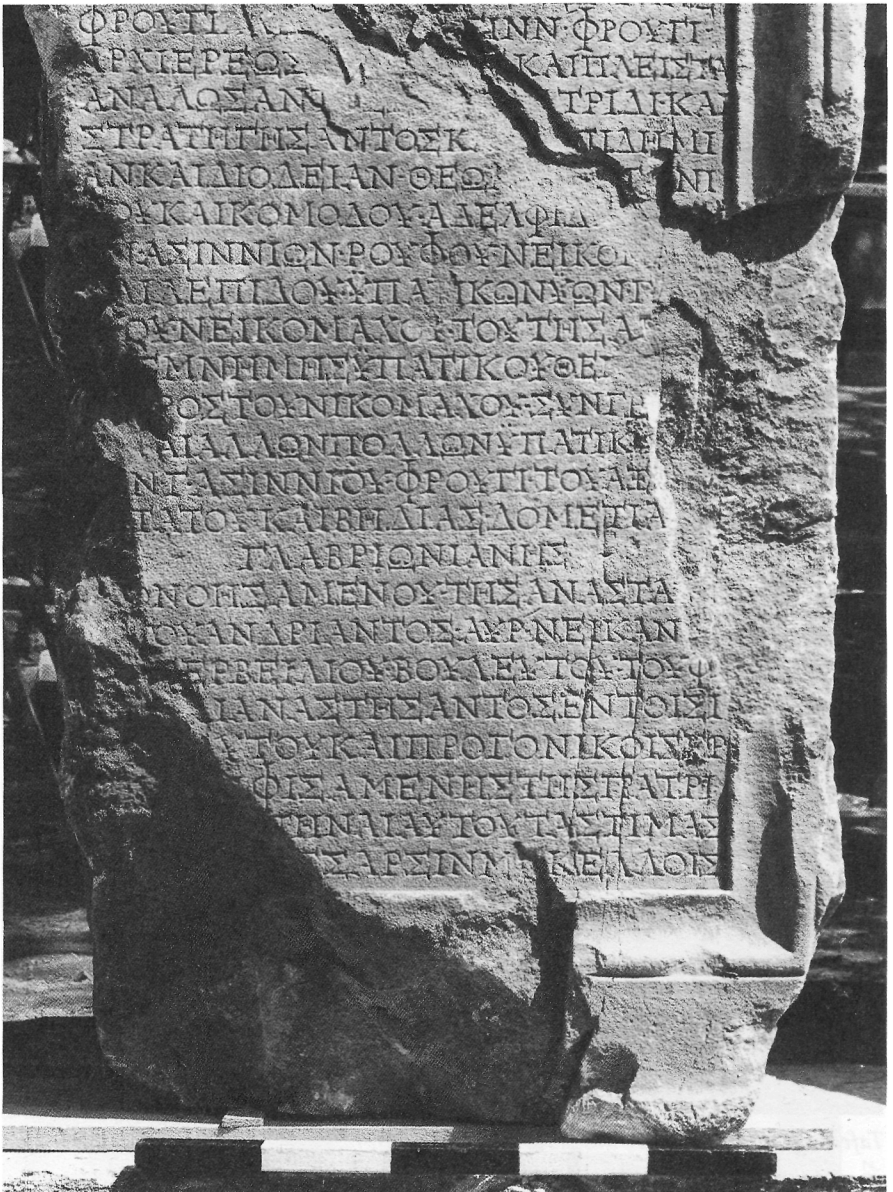 ΦΡΟΥΓΙ ΙΝΝ·ΦΡΟΥΓΙ·
ΑΡΧΙΕΡΕΩΣ ΚΑΙΠΛΕΙΣΤΑ
ΑΝΑΛΩΣΑΝ ΤΡΙΔΙΚΑΙ
ΣΤΡΑΤΗΓΗΣΑΝΤΟΣΚ ΠΙΔΗΜΙ
ΑΝΚΑΙΔΙΟΔΕΙΑΝ·ΘΕΩ ΝΙ
ΟΥΚΑΙΚΟΜΟΔΟΥ·ΑΔΕΛΦΙΔ
ΑΣΙΝΝΙΩΝ·ΡΟΥΦΟΥΝΕΙΚΟΜ
ΛΕΠΙΔΟΥΫΠΑ ΙΚΩΝΥΩΝΓ
ΟΥΝΕΙΚΟΜΑΧΟΥ·ΤΟΥΤΗΣΑ
ΜΝΗΜΗΣΥΠΑΤΙΚΟΥΘΕ
ΟΣΤΟΥΝΙΚΟΜΑΧΟΥ·ΣΥΝΓΕ
ΑΙΑΛΛΩΝΠΟΛΛΩΝΥΠΑΤΙΚ
ΝΓ·ΑΣΙΝΝΙΟΥ·ΦΡΟΥΓΙ·ΤΟΥΑΞ
ΤΑΤΟΥΚΑΙΒΗΔΙΑΣΔΟΜΕΤΙΑ
ΓΛΑΒΡΙΩΝΙΑΝΗΣ
ΟΝΟΗΣΑΜΕΝΟΥ·ΤΗΣΑΝΑΣΤΑ
ΟΥΑΝΔΡΙΑΝΤΟΣ·ΑΥΡ·ΝΕΙΚΑΝ
ΕΡΒΕΙΛΙΟΥΒΟΥΛΕΥΤΟΥΤΟΥΦ
ΙΑΝΑΣΤΗΣΑΝΤΟΣΕΝΤΟΙΣΙ
ΤΟΥΚΑΙΠΡΟΓΟΝΙΚΟΙΣΕΡ
ΦΙΣΑΜΕΝΗΣΤΗΣΠΑΤΡΙ
ΤΗΝΑΙΑΥΤΟΥΤΑΣΤΙΜΑΣ
ΟΣΑΡΣΙΝΜ ΚΕΛΛΟΙΣ